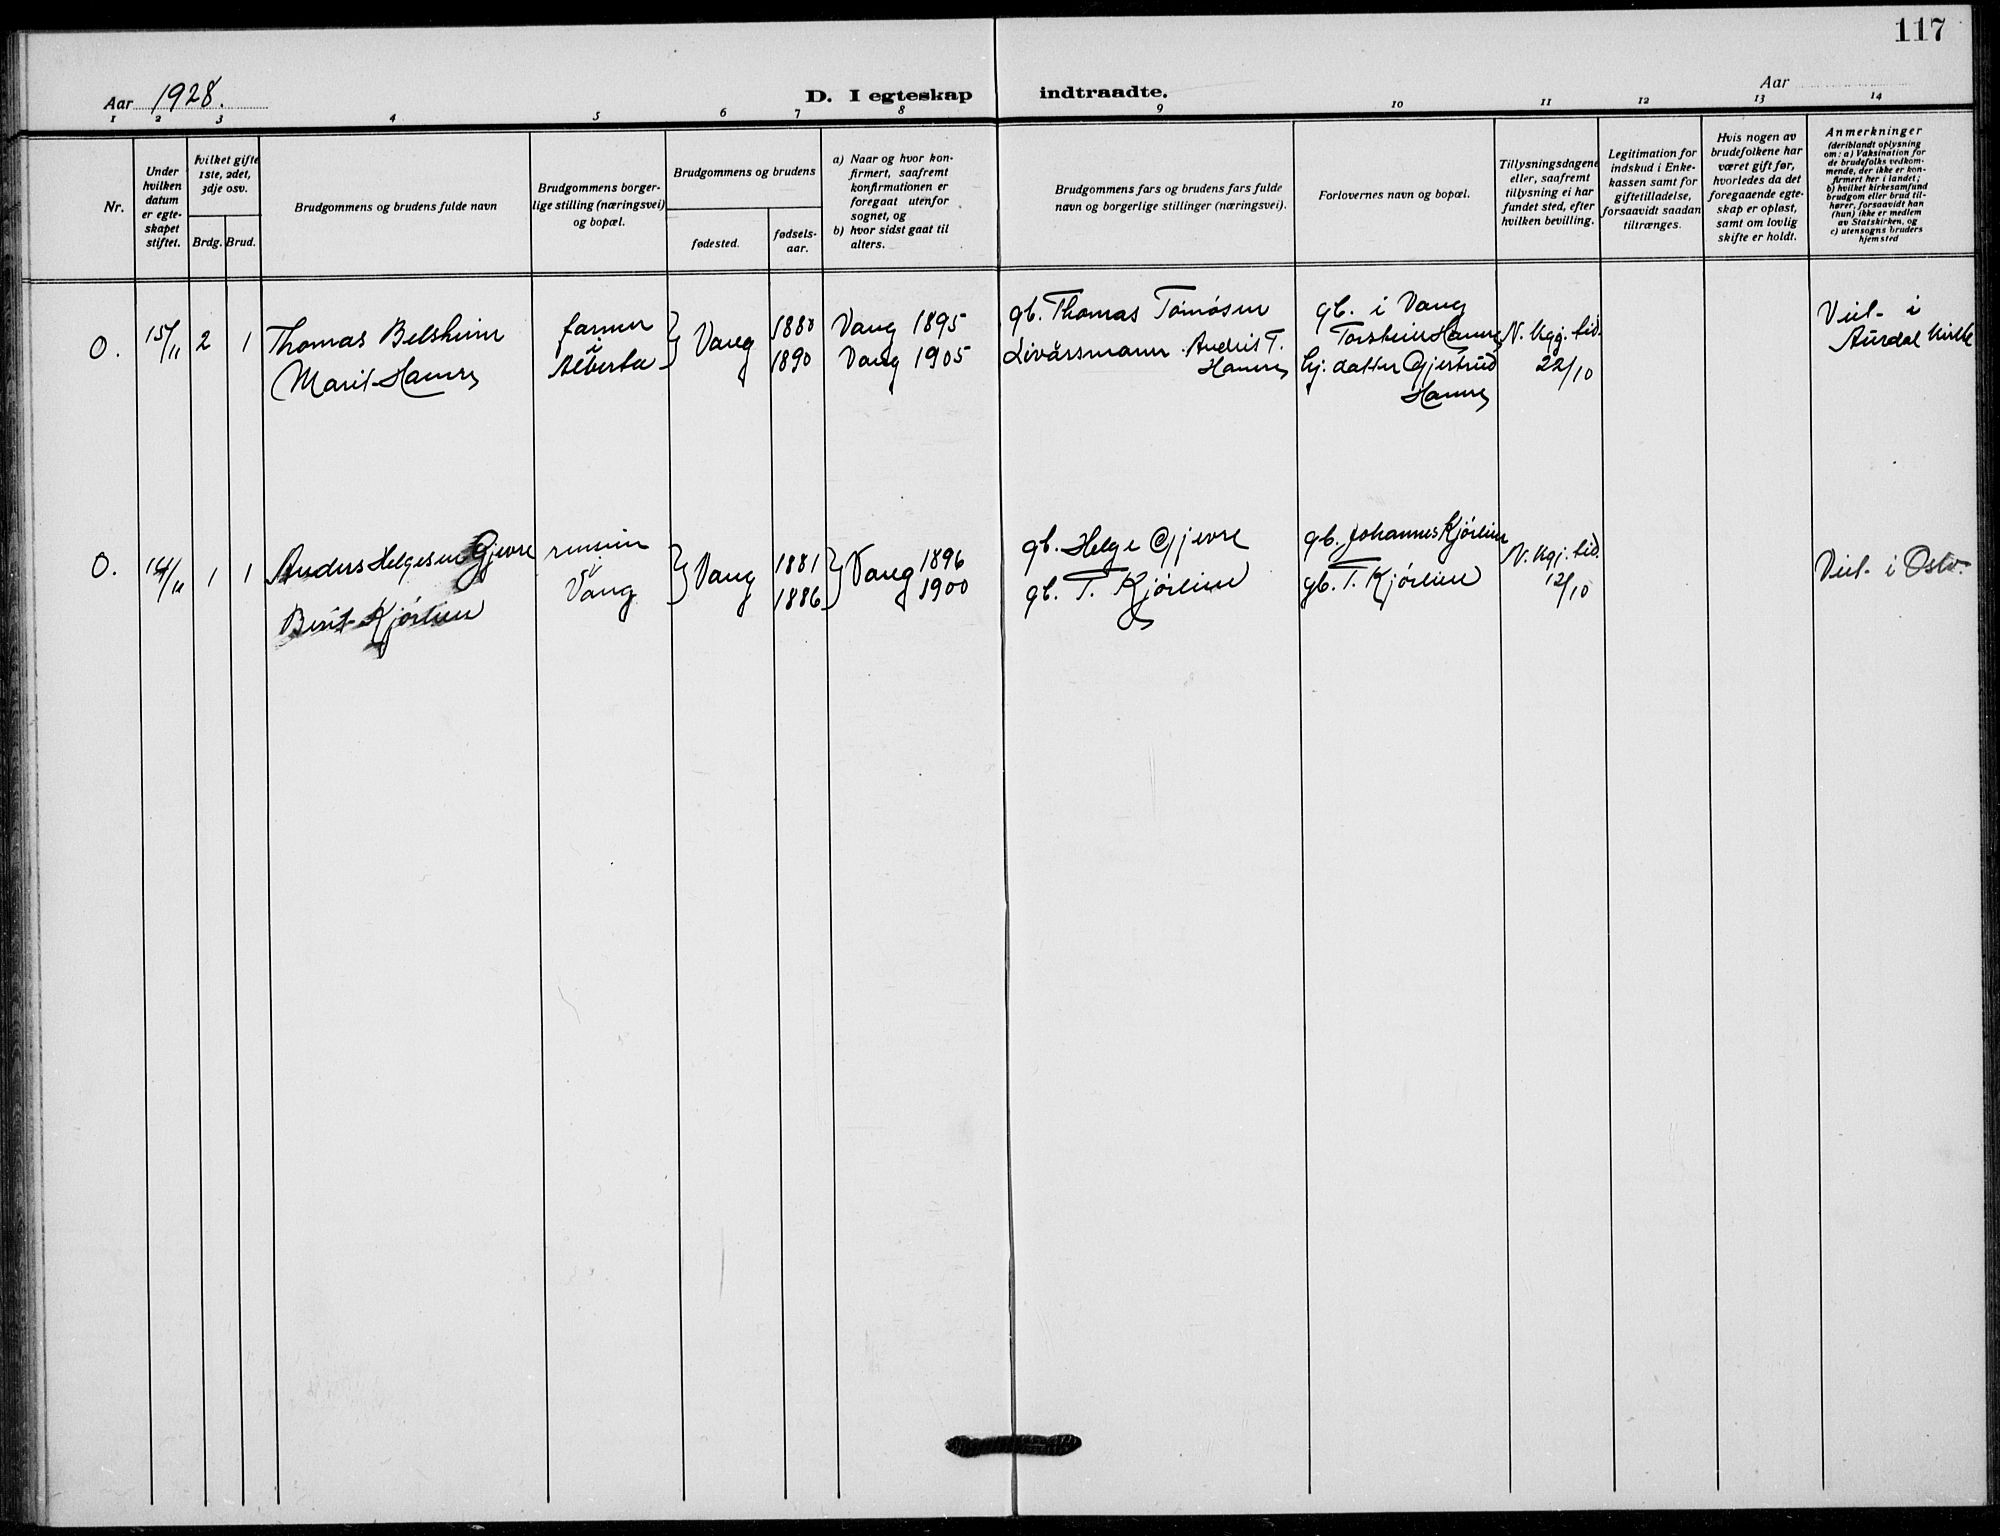 117
Aar 1928.
D. I egteskap indtraadte.
Aar
1 2 3 4 5 6 7 8 9 10 11 12 13 14
Nr.
Under
hvilken
datum
er egte-
skapet
stiftet.
hvilket gifte
1ste, 2det,
3dje osv.
Brdg. Brud.
Brudgommens og brudens fulde navn
Brudgommens borger-
lige stilling (næringsvei)
og bopæl.
Brudgommens og brudens
fødested.
fødsels-
aar.
a) Naar og hvor kon-
firmert, saafremt
konfirmationen er
foregaat utenfor
sognet, og
b) hvor sidst gaat til
alters.
Brudgommens fars og brudens fars fulde
navn og borgerlige stillinger (næringsvei).
Forlovernes navn og bopæl.
Tillysningsdagene
eller, saafremt
tillysning ei har
fundet sted, efter
hvilken bevilling.
Legitimation for
indskud i Enke-
kassen samt for
giftetilladelse,
forsaavidt saadan
tiltrænges.
Hvis nogen av
brudefolkene har
været gift før,
hvorledes da det
foregaaende egte-
skap er opløst,
samt om lovlig
skifte er holdt.
Anmerkninger
(deriblandt oplysning
om: a) Vaksination for
de brudefolks vedkom-
mende, der ikke er kon-
firmert her i landet;
b) hvilket kirkesamfund
brudgom eller brud til-
hører, forsaavidt han
(hun) ikke er medlem
av Statskirken, og
c) utensogns bruders
hjemsted
O.
15/11
2
1
Thomas Belsheim
Marit Hamre
farmer
i
Alberta
Vang
1880
1890
Vang 1895
Vang 1905
gb. Thomas Tomøsen
Livårsmann Andris T.
Hamre
gb. i Vang
Torstein Hamre
hj: datter Gjertrud
Hamre
22/10
Viet i
Aurdal Kirke
O.
1
1
Anders Helgesen Gjevre
Berit Kjørlien
i
Vang
Vang
1881
1886
Vang 1896
1900
gb. Helge Gjevre
gb. T. Kjørlien
gb. Johannes Kjørlien
gb. T. Kjørlien
12/10
Viet i Oslo.